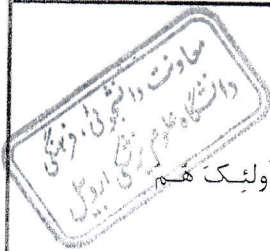 معاونت دانشجوئی، فرهنگی
دانشگاه علوم پزشکی اردبیل
ولئِکَ هُم